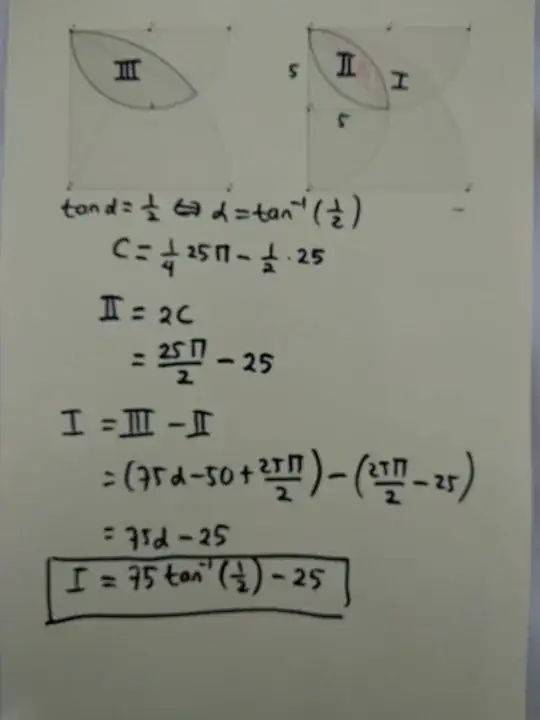 III
II
I
5
5
tan α = 1/2 ⇔ α = tan⁻¹(1/2)
C = 1/4 25π - 1/2 · 25
II = 2C
= 25π/2 - 25
I = III - II
= (75α - 50 + 25π/2) - (25π/2 - 25)
= 75α - 25
I = 75 tan⁻¹(1/2) - 25